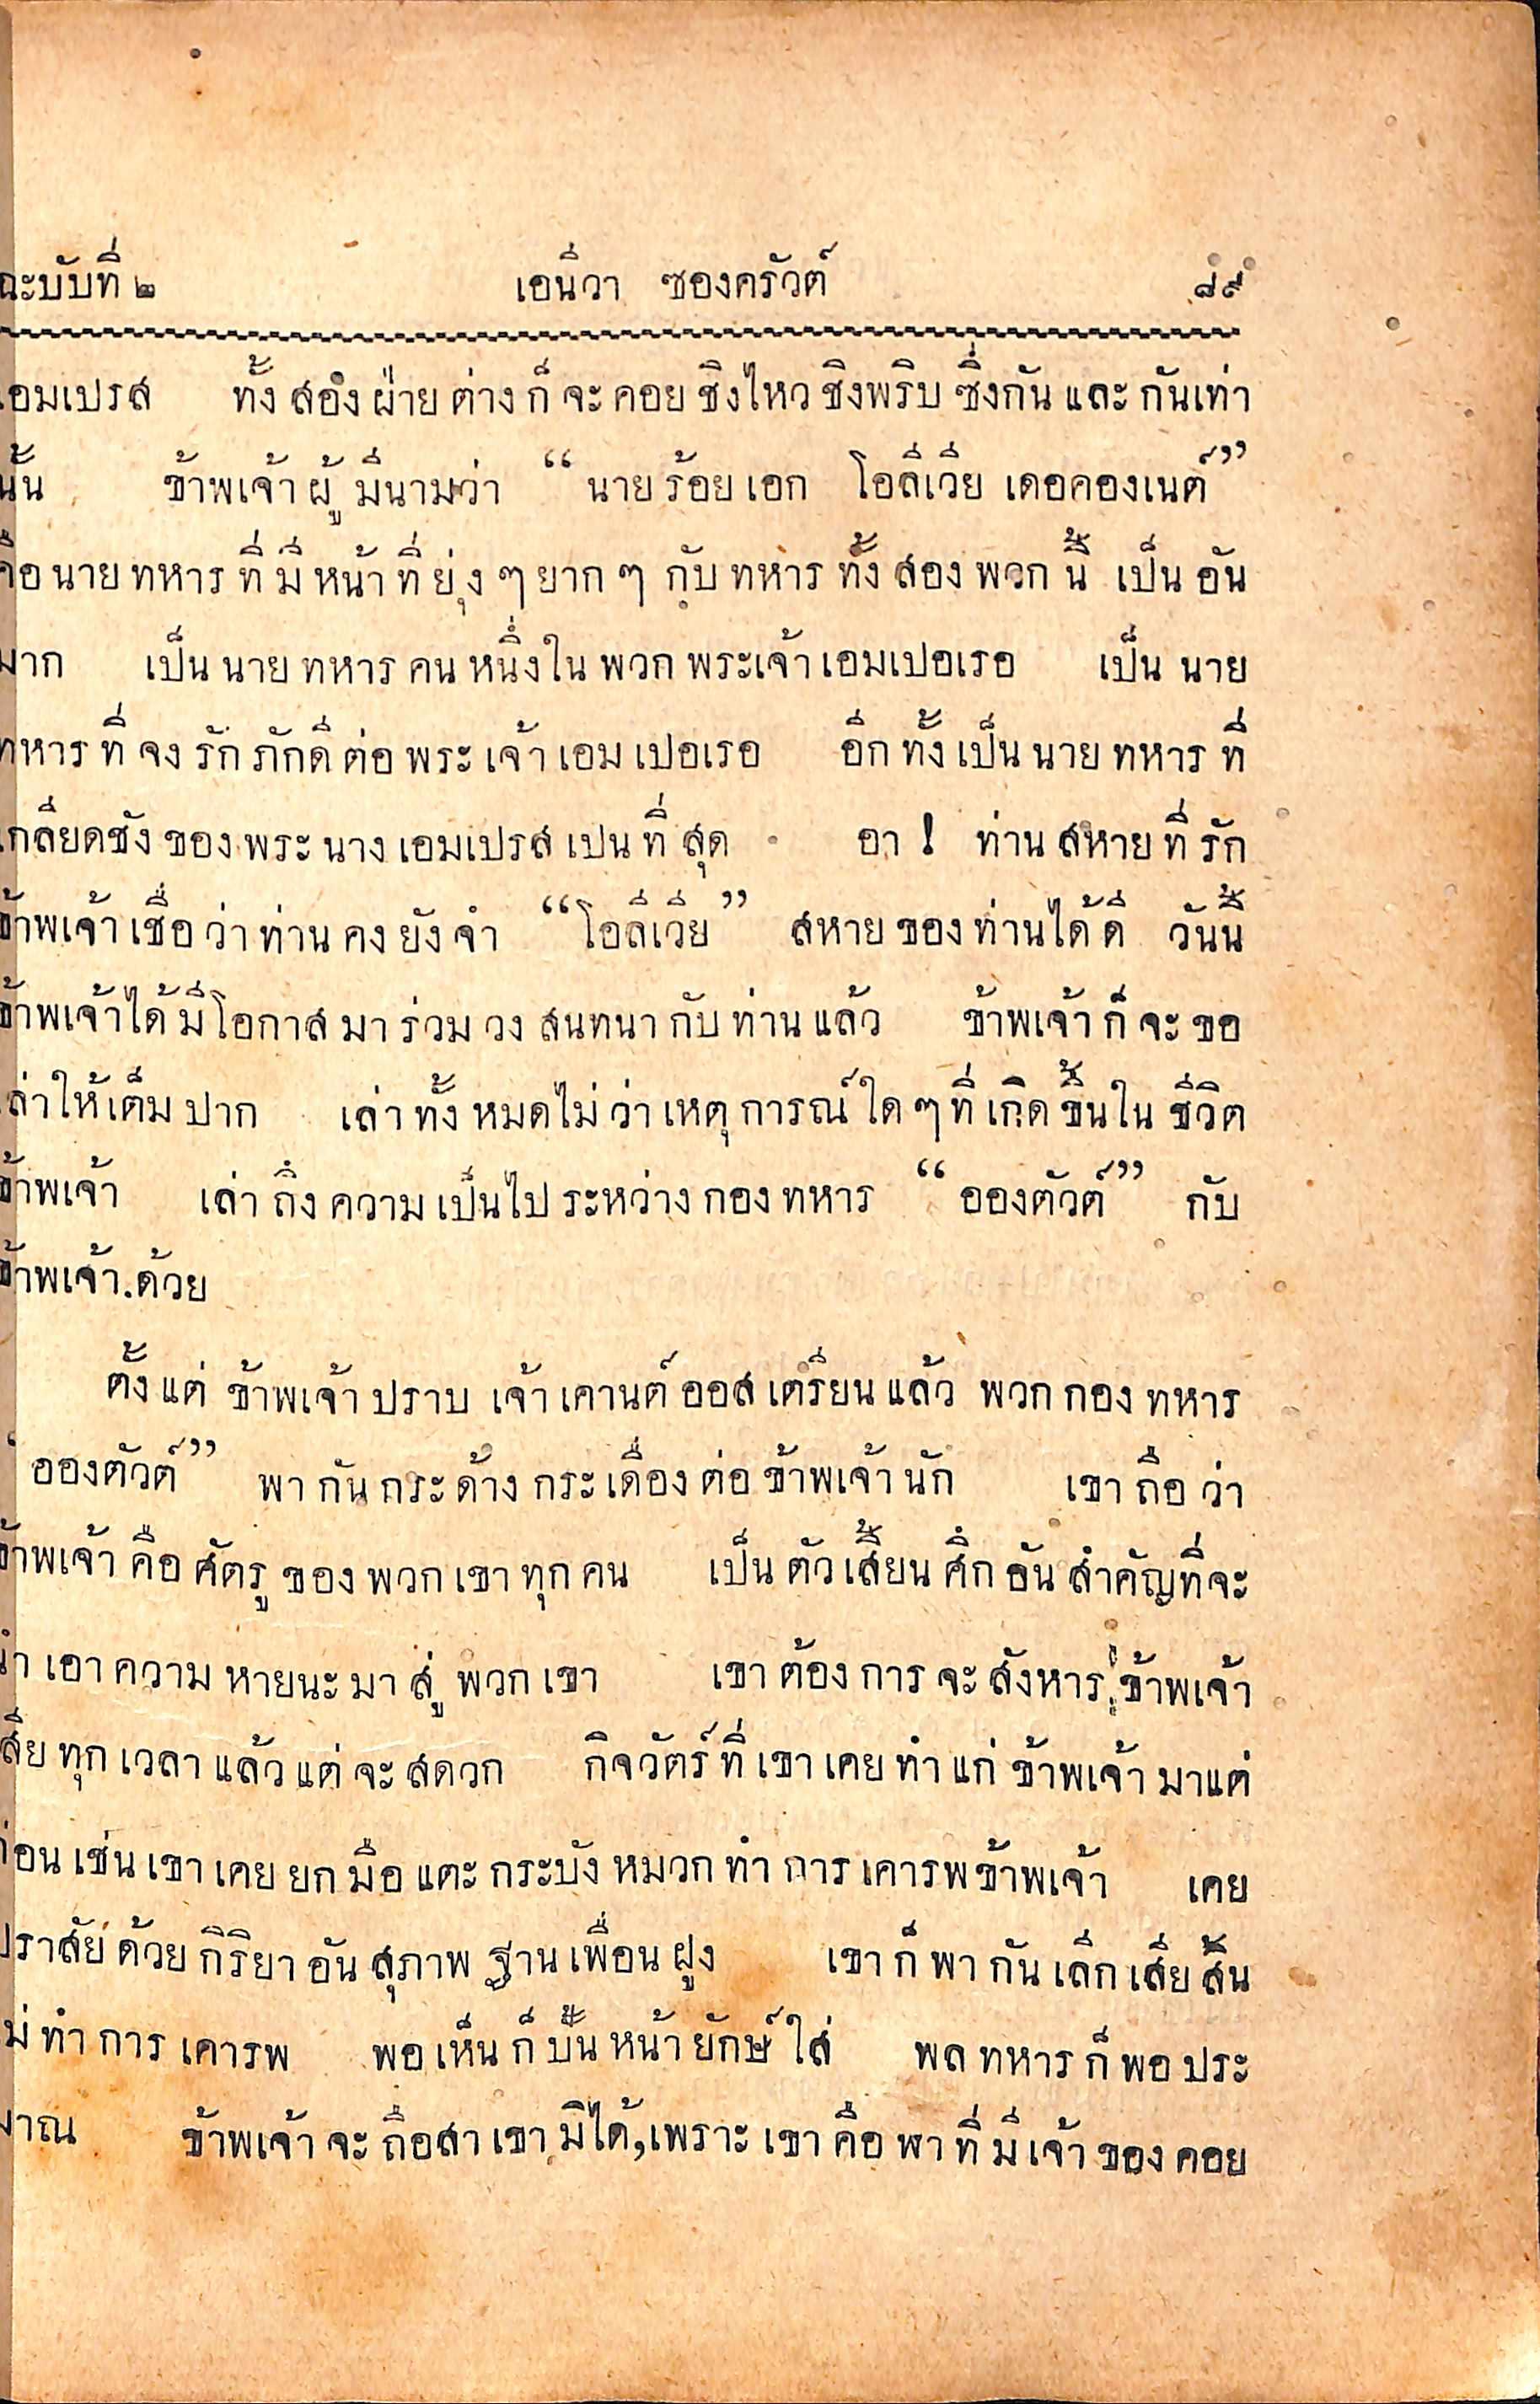 ฉะบับที่ ๒ เอนิวา ซองครัวต์ ๘๙
เอมเปรส ทั้งสองฝ่ายต่างก็จะคอยชิงไหวชิงพริบซึ่งกันและกันเท่า
นั้น ข้าพเจ้าผู้มีนามว่า “นายร้อยเอก โอลิเวีย เดอคองเนต์”
คือนายทหารที่มีหน้าที่ยุ่งๆยากๆ กับทหารทั้งสองพวกนี้ เป็นอัน
มาก เป็นนายทหารคนหนึ่งในพวกพระเจ้าเอมเปอเรอ เป็นนาย
ทหารที่จงรักภักดีต่อพระเจ้าเอมเปอเรอ อีกทั้งเป็นนายทหารที่
เกลียดชังของพระนางเอมเปรสเปนที่สุด อา! ท่านสหายที่รัก
ข้าพเจ้าเชื่อว่าท่านคงยังจำ “โอลิเวีย” สหายของท่านได้ดี วันนี้
ข้าพเจ้าได้มีโอกาสมาร่วมวงสนทนากับท่านแล้ว ข้าพเจ้าก็จะขอ
เล่าให้เต็มปาก เล่าทั้งหมดไม่ว่าเหตุการณ์ใดๆที่เกิดขึ้นในชีวิต
ข้าพเจ้า เล่าถึงความเป็นไประหว่างกองทหาร “อองตัวต์” กับ
ข้าพเจ้า.ด้วย
ตั้งแต่ข้าพเจ้าปราบเจ้าเคานต์ออสเตรียนแล้ว พวกกองทหาร
“อองตัวต์” พากันกระด้างกระเดื่องต่อข้าพเจ้านัก เขาถือว่า
ข้าพเจ้าคือศัตรูของพวกเขาทุกคน เป็นตัวเสี้ยนศึกอันสำคัญที่จะ
นำเอาความหายนะมาสู่พวกเขา เขาต้องการจะสังหารข้าพเจ้า
เสียทุกเวลาแล้วแต่จะสดวก กิจวัตร์ที่เขาเคยทำแก่ข้าพเจ้ามาแต่
ก่อนเช่นเขาเคยยกมือแตะกระบังหมวกทำการเคารพข้าพเจ้า เคย
ปราสัยด้วยกิริยาอันสุภาพฐานเพื่อนฝูง เขาก็พากันเลิกเสียสิ้น
ไม่ทำการเคารพ พอเห็นก็ปั้นหน้ายักษ์ใส่ พลทหารก็พอประ
มาณ ข้าพเจ้าจะถือสาเขามิได้,เพราะเขาคือพาที่มีเจ้าของคอย